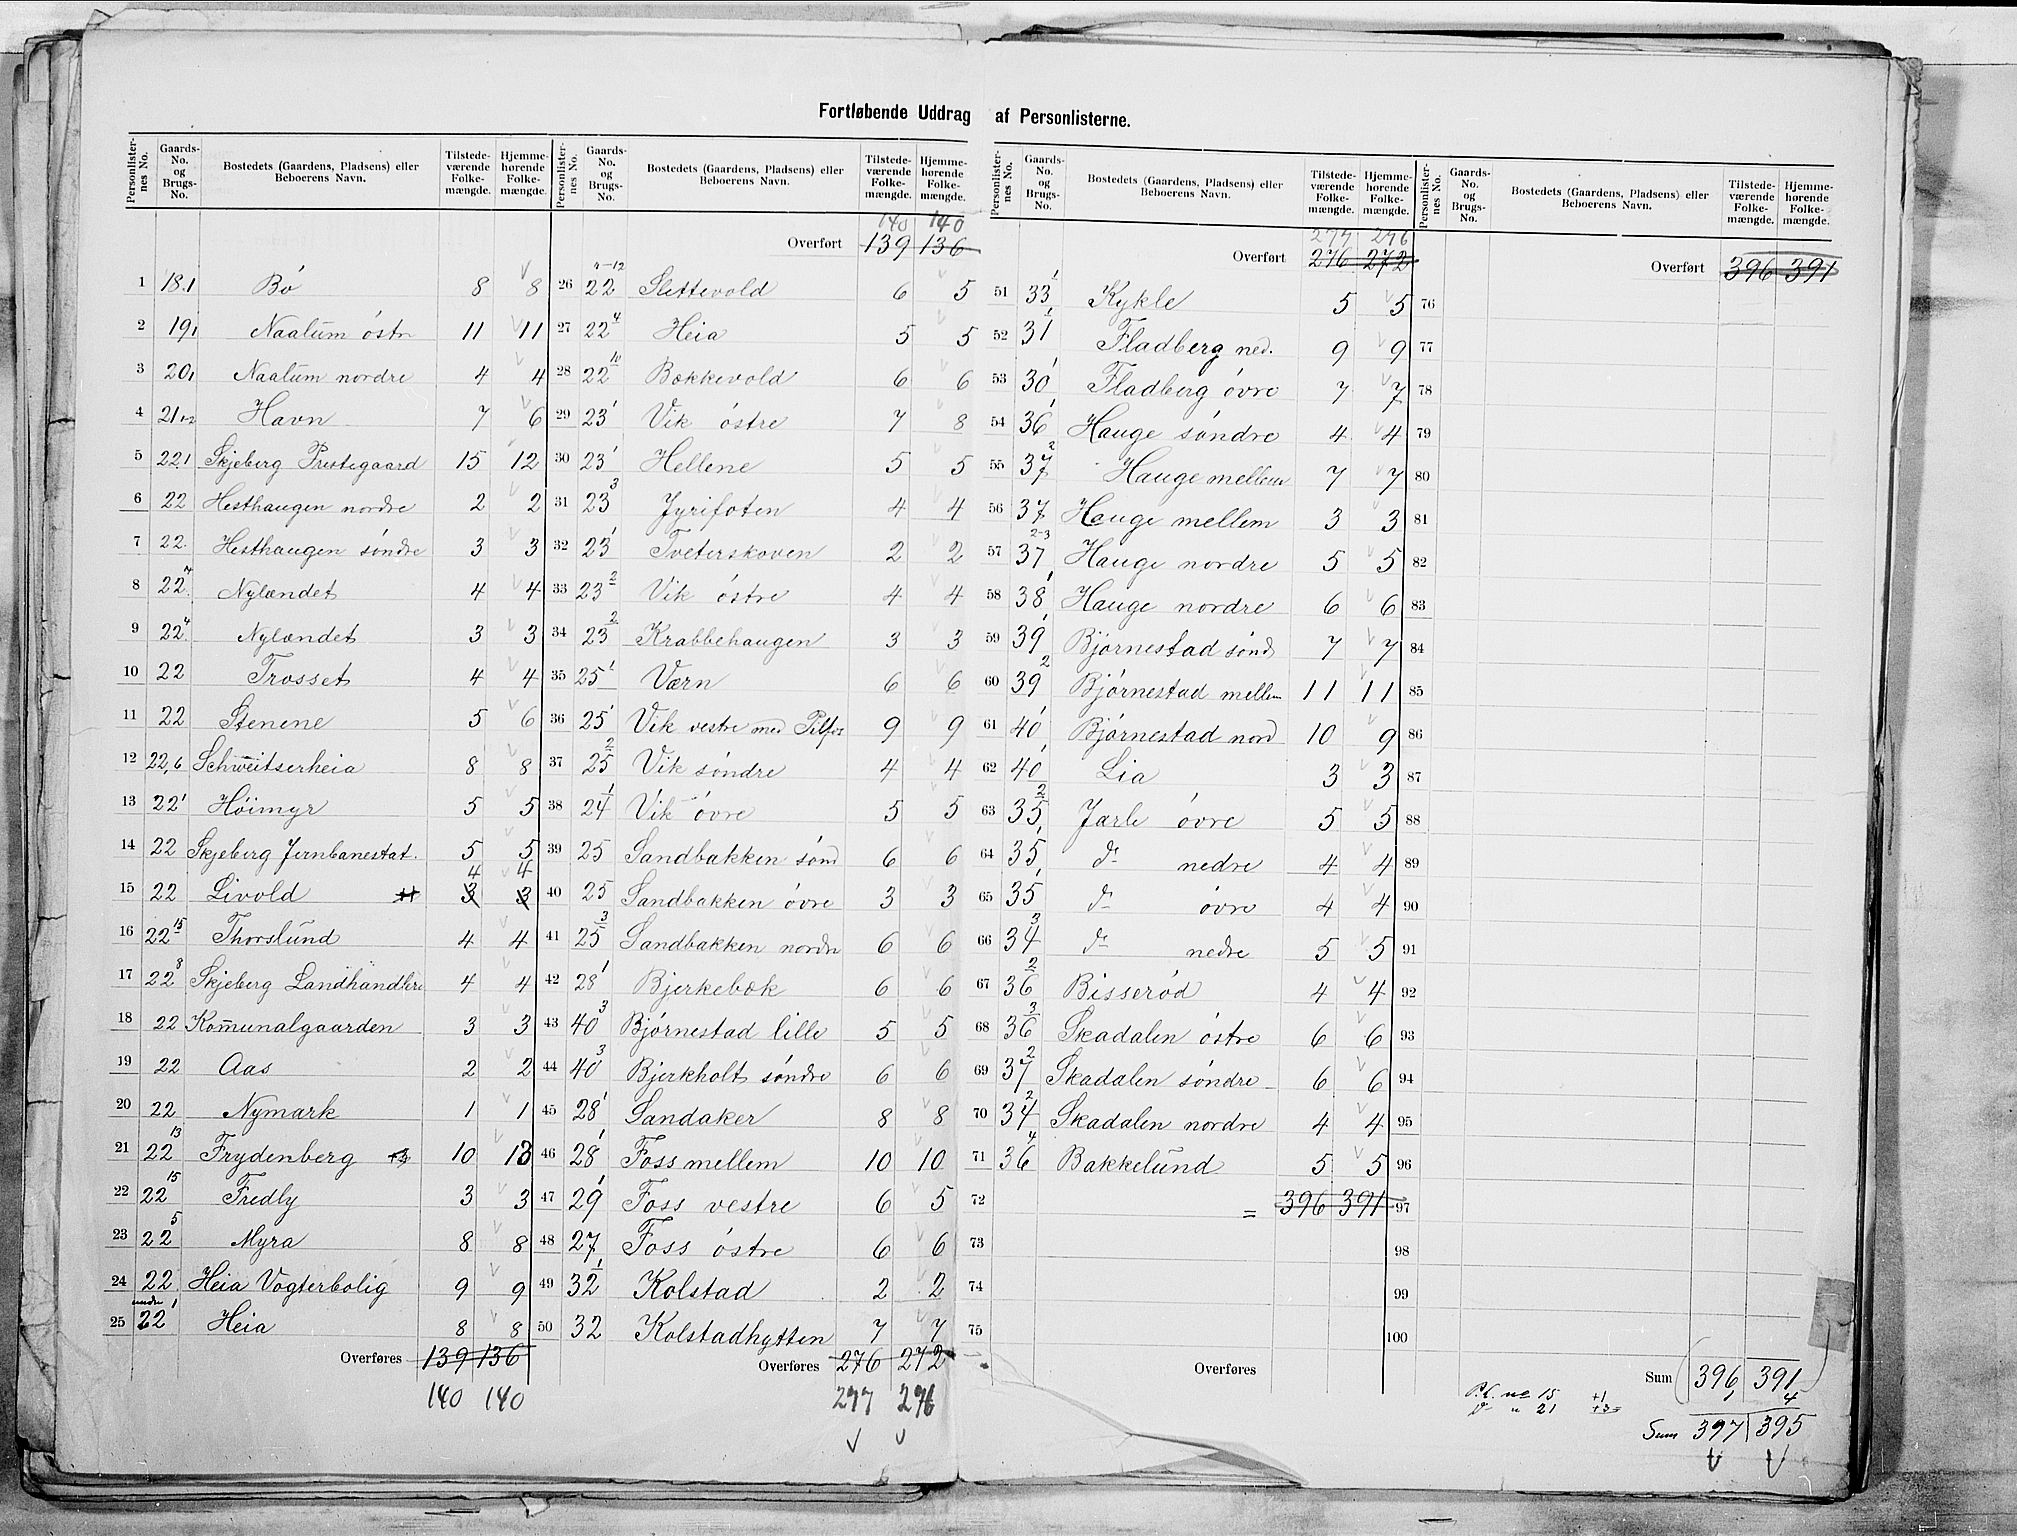 Fortløbende Uddrag af Personlisterne.
Personlister-nes No. Gaards-No. og Brugs-No. Bostedets (Gaardens, Pladsens) eller Beboerens Navn. Tilstede-værende Folke-mængde. Hjemme-hørende Folke-mængde.
1 18.1 Bö 8 8
2 19,1 Naalum östr 11 11
3 20,1 Naalum nordre 4 4
4 21,1-2 Havn 7 6
5 22,1 Skjeberg Prestegaard 15 12
6 22 Hesthaugen nordre 2 2
7 22. Hesthaugen söndre 3 3
8 22.7 Nylændet 4 4
9 22.4 Nylændet 3 3
10 22 Trosset 4 4
11 22 Stenene 5 6
12 22,6 Schweitserheia 8 8
13 22,1 Höimyr 5 5
14 22 Skjeberg Jernbanestat. 5 5
15 22 Livold +1 3 4 3 4
16 22 15 Thorslund 4 4
17 22 8 Skjeberg Landhandleri 4 4
18 22 Kommunalgaarden 3 3
19 22 Aas 2 2
20 22 Nymark 1 1
21 22 13 Frydenberg +3 10 13
22 22 15 Fredly 3 3
23 22 5 Myra 8 8
24 22 Heia Vogterbolig 9 9
25 under 22 1 Heia 8 8
Overføres 139 136
140 140
Personlister-nes No. Gaards-No. og Brugs-No. Bostedets (Gaardens, Pladsens) eller Beboerens Navn. Tilstede-værende Folke-mængde. Hjemme-hørende Folke-mængde.
140 140
Overført 139 136
26 22 4-12 Slettevold 6 5
27 22 4 Heia 5 5
28 22 10 Bækkevold 6 6
29 23 1 Vik östre 7 8
30 23 1 Hellene 5 5
31 23 3 Jyrifoten 4 4
32 23 1 Tveterskoven 2 2
33 23 2 Vik östre 4 4
34 23 2 Krabbehaugen 3 3
35 25 1 Værn 6 6
36 25 1 Vik vestre med Pilfos 9 9
37 25 2 Vik söndre 4 4
38 24 1 Vik övre 5 5
39 25 Sandbakken sönd 6 6
40 25 Sandbakken övre 3 3
41 25 3 Sandbakken nordre 6 6
42 28 1 Bjerkebæk 6 6
43 40 3 Bjørnestad lille 5 5
44 40 3 Bjerkholt söndre 6 6
45 28 1 Sandaker 8 8
46 28 1 Foss mellem 10 10
47 29 1 Foss vestre 6 5
48 27 Foss östre 6 6
49 32 1 Kolstad 2 2
50 32 Kolstadhytten 7 7
Overføres 276 272
277 276
Personlister-nes No. Gaards-No. og Brugs-No. Bostedets (Gaardens, Pladsens) eller Beboerens Navn. Tilstede-værende Folke-mængde. Hjemme-hørende Folke-mængde.
277 276
Overført 276 272
51 33 1 Kykle 5 5
52 31 1 Fladberg ned. 9 9
53 30 Fladberg övre 7 7
54 36 1 Hauge söndre 4 4
55 37 2 Hauge mellem 7 7
56 37 Hauge mellem 3 3
57 37 2-3 Hauge nordre 5 5
58 38 1 Hauge nordre 6 6
59 39 1 Bjørnestad sönd 7 7
60 39 2 Bjørnestad mellem 11 11
61 40 1 Bjørnestad nord 10 9
62 40 1 Lia 3 3
63 35 2 Jarle övre 5 5
64 35 1 do nedre 4 4
65 35 1 do övre 4 4
66 34 3 do nedre 5 5
67 36 2 Bisseröd 4 4
68 36 3 Skadalen östre 6 6
69 37 2 Skadalen söndre 6 6
70 34 2 Skadalen nordre 4 4
71 36 4 Bakkelund 5 5
72 = 396 391
73
74
75
Overføres
Personlister-nes No. Gaards-No. og Brugs-No. Bostedets (Gaardens, Pladsens) eller Beboerens Navn. Tilstede-værende Folke-mængde. Hjemme-hørende Folke-mængde.
Overført 396 391
76
77
78
79
80
81
82
83
84
85
86
87
88
89
90
91
92
93
94
95
96
97
98
99
100
Sum 396 391
P.l. no 15 +1 1 4
do " 21 +3
Sum 397 395